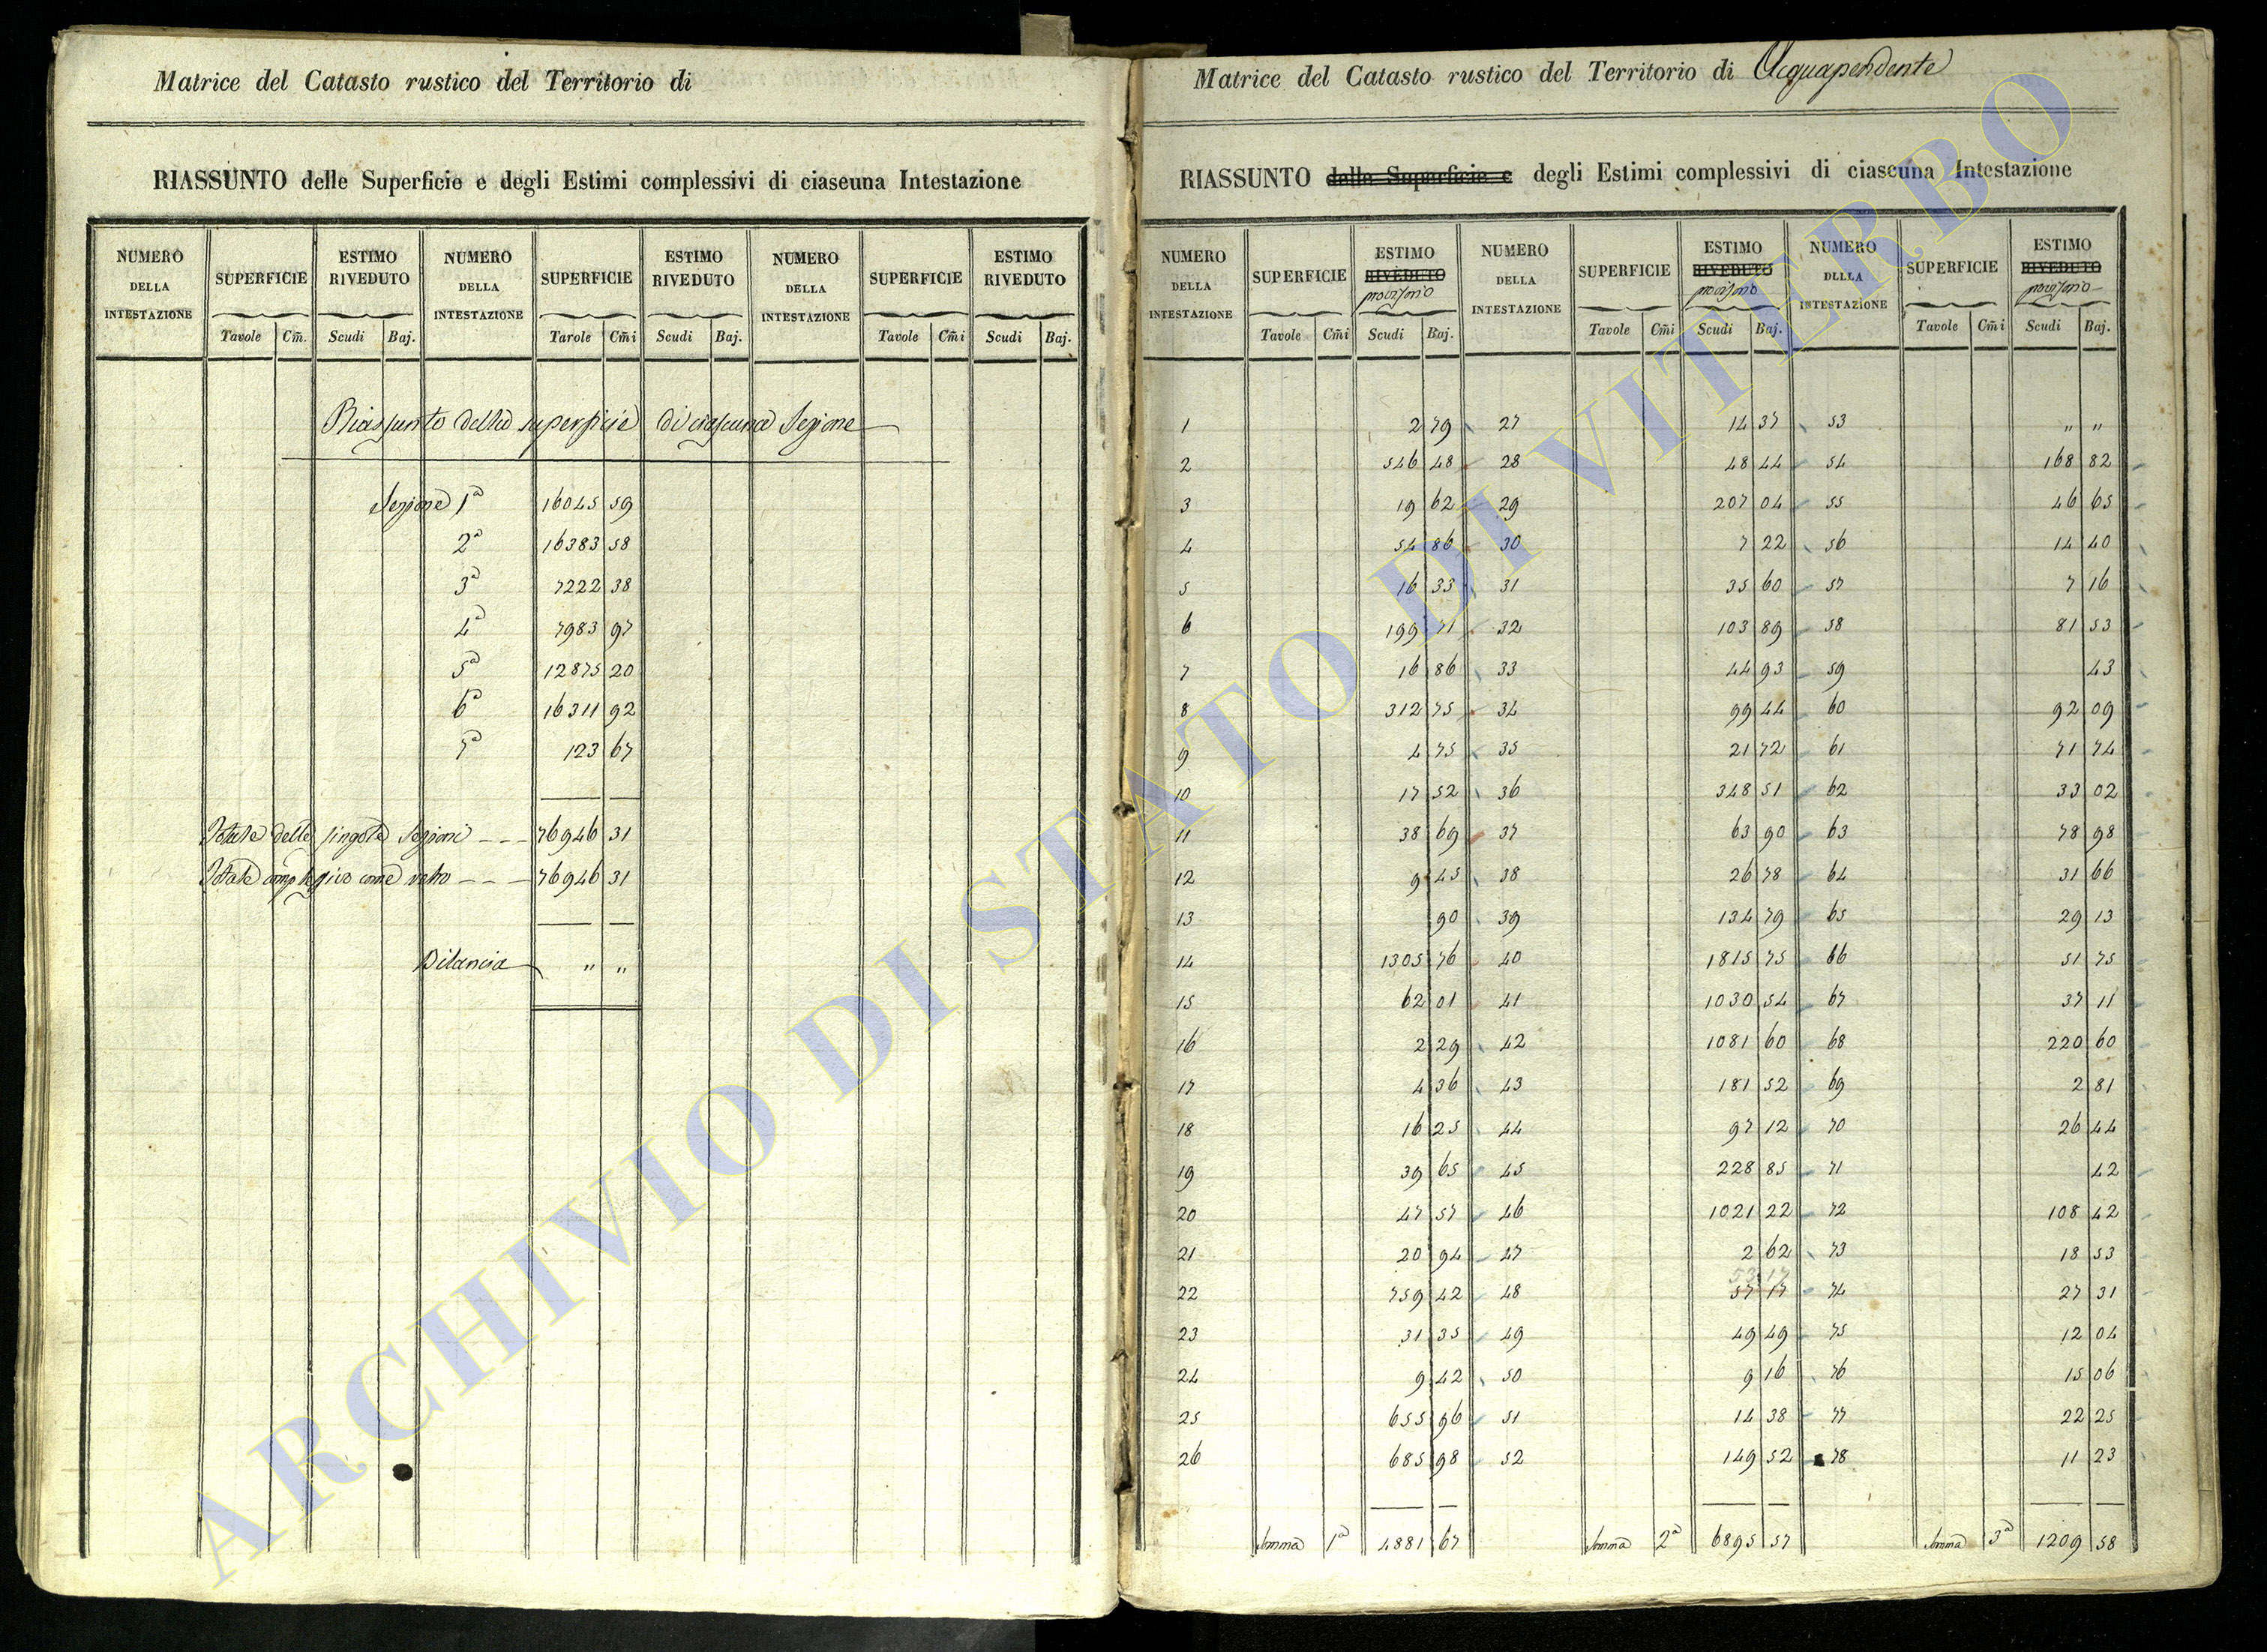 Matrice del Catasto rustico del Territorio di
RIASSUNTO delle Superficie e degli Estimi complessivi di ciascuna Intestazione
NUMERO DELLA INTESTAZIONE SUPERFICIE ESTIMO RIVEDUTO NUMERO DELLA INTESTAZIONE SUPERFICIE ESTIMO RIVEDUTO NUMERO DELLA INTESTAZIONE SUPERFICIE ESTIMO RIVEDUTO
Tavole Cm̃. Scudi Baj. Tavole Cm̃i Scudi Baj. Tavole Cm̃i Scudi Baj.
Riassunto della superficie di ciascuna Sezione
Sezione 1ª 16045 59
2ª 16383 58
3ª 7222 38
4ª 7983 97
5ª 12875 20
6ª 16311 92
7ª 123 67
Totale delle singole Sezioni - - - 76946 31
Totale complessivo come retro - - - 76946 31
Bilancia " "
Matrice del Catasto rustico del Territorio di Acquapendente
RIASSUNTO delle Superficie e degli Estimi complessivi di ciascuna Intestazione
NUMERO DELLA INTESTAZIONE SUPERFICIE ESTIMO RIVEDUTO provisorio NUMERO DELLA INTESTAZIONE SUPERFICIE ESTIMO RIVEDUTO provisorio NUMERO DELLA INTESTAZIONE SUPERFICIE ESTIMO RIVEDUTO provisorio
Tavole Cm̃i Scudi Baj. Tavole Cm̃i Scudi Baj. Tavole Cm̃i Scudi Baj.
1 2 79 27 14 37 53 " "
2 546 48 28 48 44 54 168 82
3 19 62 29 207 04 55 46 65
4 54 86 30 7 22 56 14 40
5 16 33 31 35 60 57 7 16
6 199 71 32 103 89 58 81 53
7 16 86 33 44 93 59 43
8 312 75 34 99 44 60 92 09
9 4 75 35 21 72 61 71 74
10 17 52 36 348 51 62 33 02
11 38 69 37 63 90 63 78 98
12 9 45 38 26 78 64 31 66
13 90 39 134 79 65 29 13
14 1305 76 40 1815 75 66 51 75
15 62 01 41 1030 54 67 37 11
16 2 29 42 1081 60 68 220 60
17 4 36 43 181 52 69 2 81
18 16 25 44 97 12 70 26 44
19 39 65 45 228 85 71 42
20 47 57 46 1021 22 72 108 42
21 20 94 47 2 62 73 18 53
53 17
22 759 42 48 57 17 74 27 31
23 31 35 49 49 49 75 12 04
24 9 42 50 9 16 76 15 06
25 655 96 51 14 38 77 22 25
26 685 98 52 149 52 78 11 23
Somma 1ª 4881 67 Somma 2ª 6895 57 Somma 3ª 1209 58
ARCHIVIO DI STATO DI VITERBO